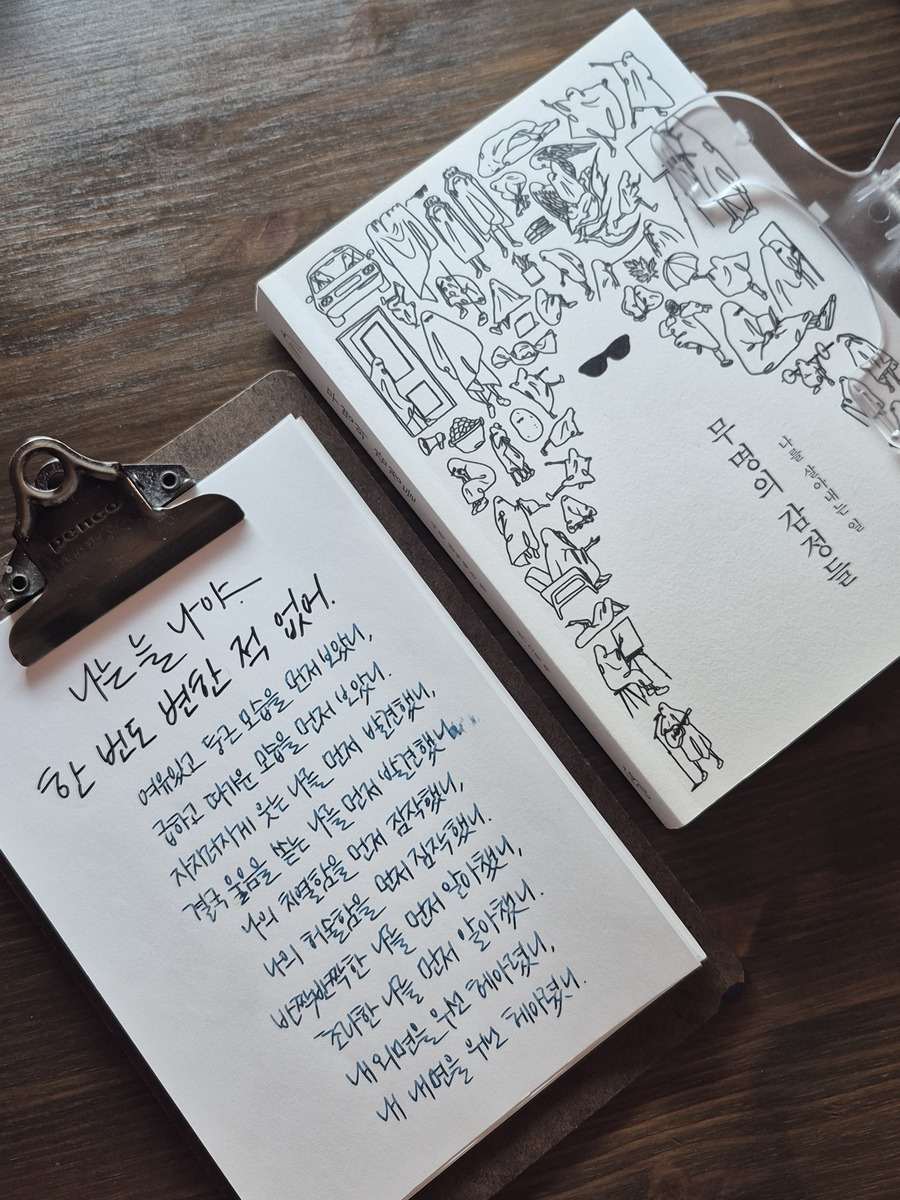 penco
나는 늘 나야.
한 번도 변한 적 없어.
여유있고 둥근 모습을 먼저 보았니,
급하고 따가운 모습을 먼저 보았니.
자지러지게 웃는 나를 먼저 발견했니,
결국 울음을 쏟는 나를 먼저 발견했니
나의 치열함을 먼저 짐작했니,
나의 허술함을 먼저 짐작했니.
반짝반짝한 나를 먼저 알아챘니,
초라한 나를 먼저 알아챘니.
내 외면을 우선 헤아렸니,
내 내면을 우선 헤아렸니.
나를 살아내는 일
무명의 감정들